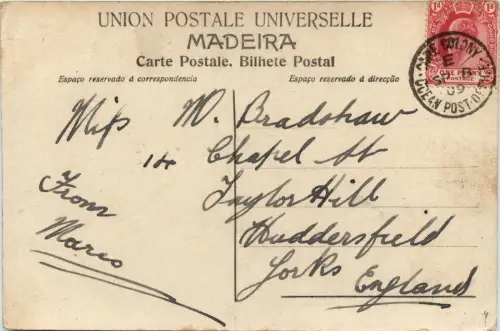 UNION POSTALE UNIVERSELLE
MADEIRA
Carte Postale. Bilhete Postal
Espaço reservado á correspondencia
Espaço reservado á direcção
CAPE COLONY
E
09
OCEAN POST
ONE PENNY
POSTAGE
Miss M. Bradshaw
14 Chapel St
Taylor Hill
Huddersfield
Yorks England
From